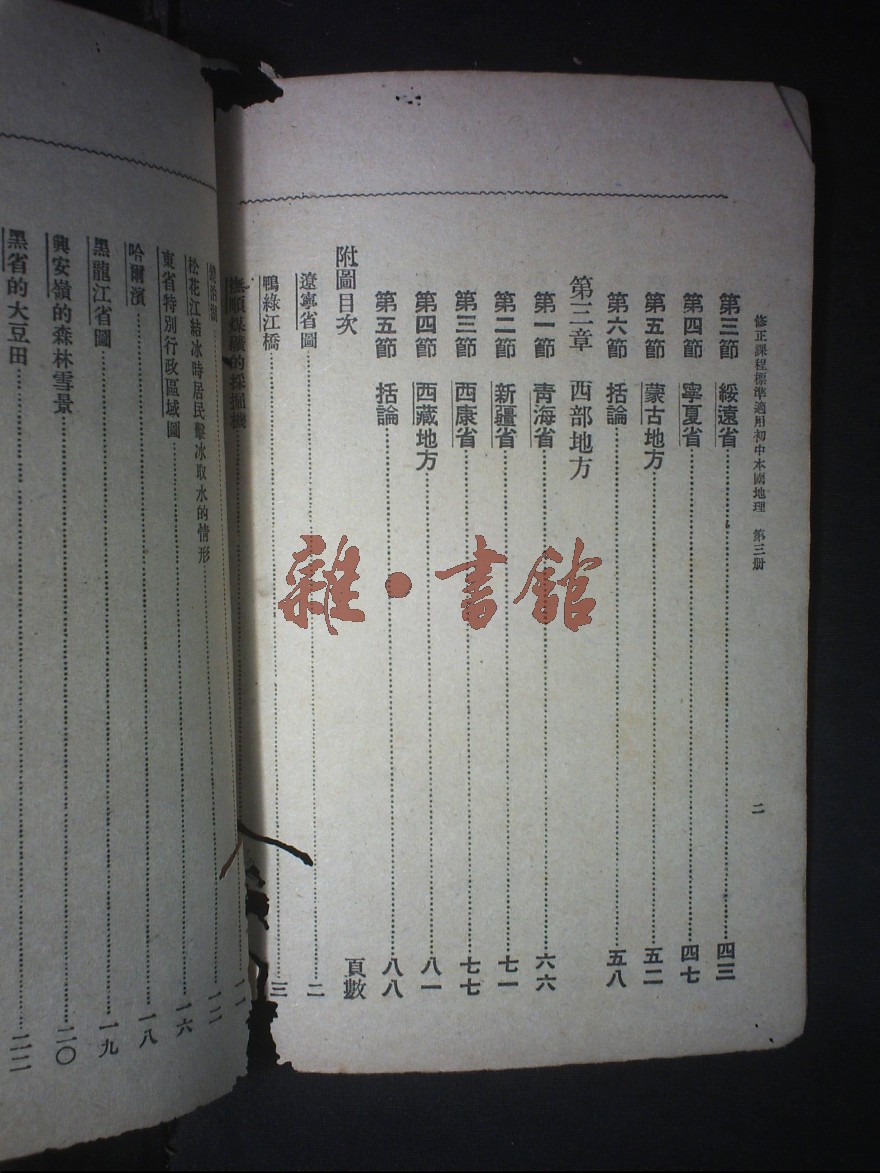 修正課程標準適用初中本國地理 第三册
二
第三節 綏遠省 四三
第四節 寧夏省 四七
第五節 蒙古地方 五二
第六節 括論 五八
第三章 西部地方
第一節 青海省 六六
第二節 新疆省 七一
第三節 西康省 七七
第四節 西藏地方 八一
第五節 括論 八八
附圖目次 頁數
遼寧省圖 二
鴨綠江橋 三
撫順煤礦的採掘機
松花江結冰時居民擊冰取水的情形
東省特別行政區域圖 一六
哈爾濱 一八
黑龍江省圖 一九
興安嶺的森林雪景 二〇
黑省的大豆田 二二
雜·書館